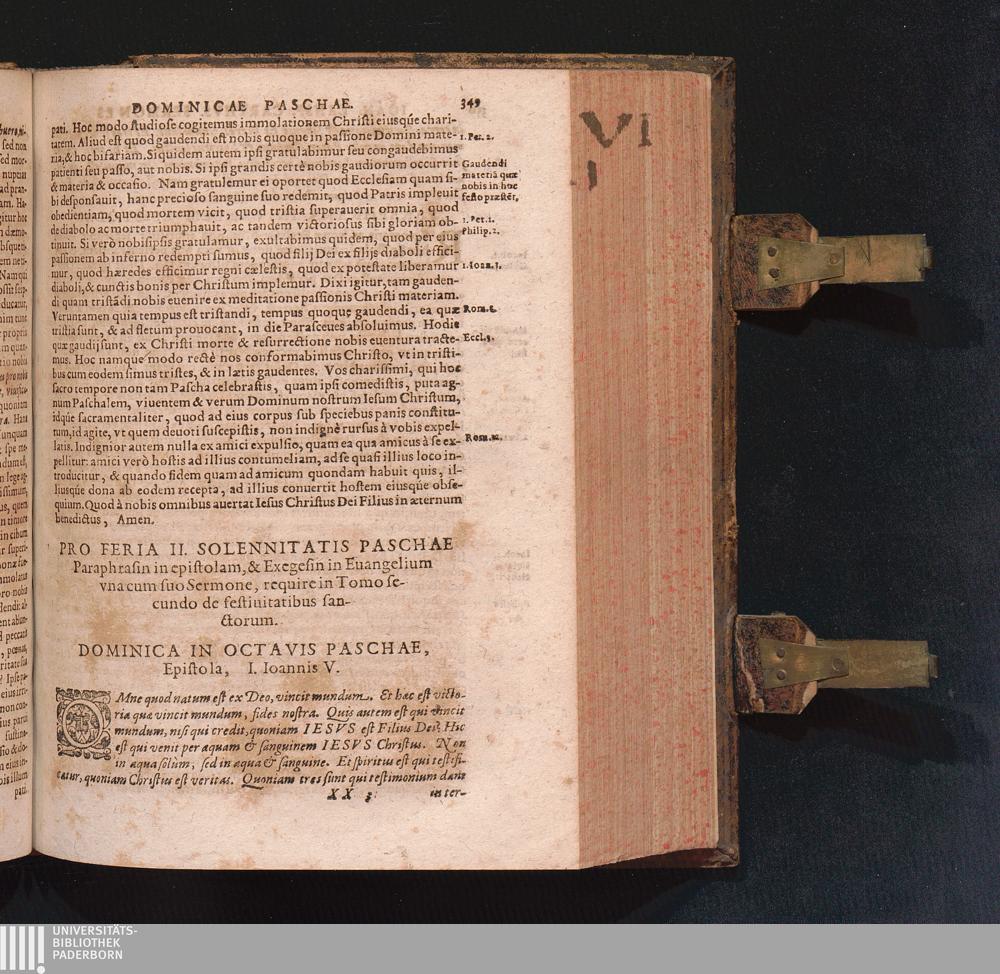 DOMINICAE PASCHAE. 349
pati. Hoc modo ſtudioſe cogitemus immolationem Chriſti eiusq́ue chari-
tatem. Aliud eſt quod gaudendi eſt nobis quoque in paſſione Domini mate-
ria, & hoc bifariam. Siquidem autem ipſi gratulabimur ſeu congaudebimus
patienti ſeu paſſo, aut nobis. Si ipſi grandis certè nobis gaudiorum occurrit
& materia & occaſio. Nam gratulemur ei oportet quod Eccleſiam quam ſi-
bi deſponſauit, hanc precioſo ſanguine ſuo redemit, quod Patris impleuit
obedientiam, quod mortem vicit, quod triſtia ſuperauerit omnia, quod
de diabolo ac morte triumphauit, ac tandem victorioſus ſibi gloriam ob-
tinuit. Si verò nobiſipſis gratulamur, exultabimus quidem, quod per eius
paſſionem ab inferno redempti ſumus, quod filij Dei ex filijs diaboli effici-
mur, quod hæredes efficimur regni cæleſtis, quod ex poteſtate liberamur
diaboli, & cunctis bonis per Chriſtum implemur. Dixi igitur, tam gauden-
di quam triſtādi nobis euenire ex meditatione paſſionis Chriſti materiam.
Veruntamen quia tempus eſt triſtandi, tempus quoque gaudendi, ea quæ
triſtia ſunt, & ad fletum prouocant, in die Paraſceues abſoluimus. Hodie
quæ gaudij ſunt, ex Chriſti morte & reſurrectione nobis euentura tracte-
mus. Hoc namque modo rectè nos conformabimus Chriſto, vt in triſti-
bus cum eodem ſimus triſtes, & in lætis gaudentes. Vos chariſſimi, qui hoc
ſacro tempore non tam Paſcha celebraſtis, quam ipſi comediſtis, puta ag-
num Paſchalem, viuentem & verum Dominum noſtrum Ieſum Chriſtum,
idque ſacramentaliter, quod ad eius corpus ſub ſpeciebus panis conſtitu-
tum, id agite, vt quem deuoti ſuſcepiſtis, non indignè rurſus à vobis expel-
latis. Indignior autem nulla ex amici expulſio, quam ea qua amicus à ſe ex-
pellitur: amici verò hoſtis ad illius contumeliam, ad ſe quaſi illius loco in-
troducitur, & quando fidem quam ad amicum quondam habuit quis, il-
liusque dona ab eodem recepta, ad illius conuertit hoſtem eiusque obſe-
quium. Quod à nobis omnibus auertat Ieſus Chriſtus Dei Filius in æternum
benedictus, Amen.
1. Pet. 2.
Gaudendi
materiā quæ
nobis in hoc
feſto præſtēt.
1. Pet. 1.
Philip. 2.
1. Ioan. 3.
Rom. 8.
Eccl. 3.
Rom. 12.
PRO FERIA II. SOLENNITATIS PASCHAE
Paraphraſin in epiſtolam, & Exegeſin in Euangelium
vna cum ſuo Sermone, require in Tomo ſe-
cundo de feſtiuitatibus ſan-
ctorum.
DOMINICA IN OCTAVIS PASCHAE,
Epiſtola, I. Ioannis V.
OMne quod natum eſt ex Deo, vincit mundum. Et hæc eſt victo-
ria quæ vincit mundum, fides noſtra. Quis autem eſt qui vincit
mundum, niſi qui credit, quoniam IESVS eſt Filius Dei? Hic
eſt qui venit per aquam & ſanguinem IESVS Chriſtus. Non
in aqua ſolùm, ſed in aqua & ſanguine. Et ſpiritus eſt qui teſtifi-
catur, quoniam Chriſtus eſt veritas. Quoniam tres ſunt qui teſtimonium dant
XX 3 in ter-
VI
UNIVERSITÄTS-
BIBLIOTHEK
PADERBORN